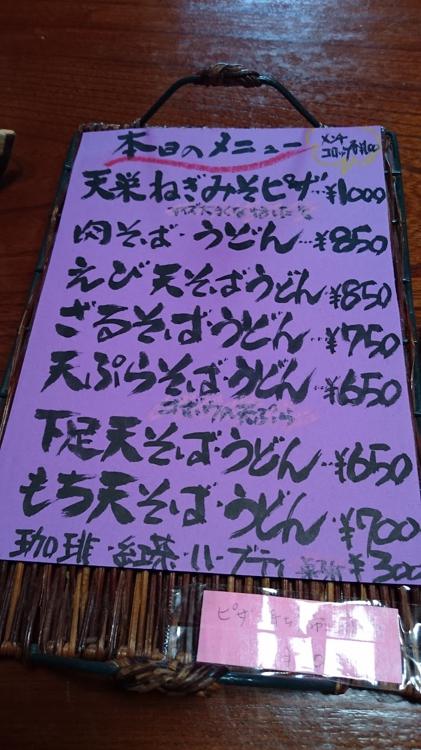 本日のメニュー
メンチ
コロッケ
天栄ねぎみそピザ…¥1000
肉そば・うどん…¥850
えび天そば・うどん…¥850
ざるそば・うどん…¥750
天ぷらそば・うどん…¥650
ごぼうの天ぷら
下足天そば・うどん…¥650
もち天そば・うどん…¥700
珈琲・紅茶・ハーブティ ¥300
ピザ